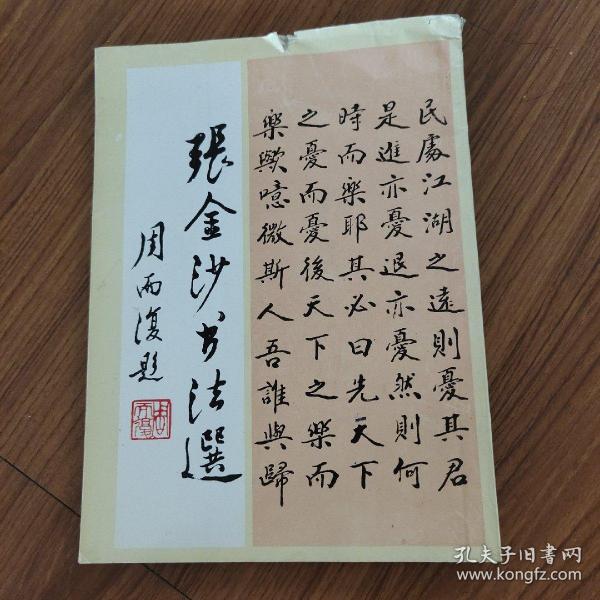 民處江湖之遠則憂其君
是進亦憂退亦憂然則何
時而樂耶其必曰先天下
之憂而憂後天下之樂而
樂歟噫微斯人吾誰與歸
張金沙书法選
周而復题
孔夫子旧書网
www.kongfz.com